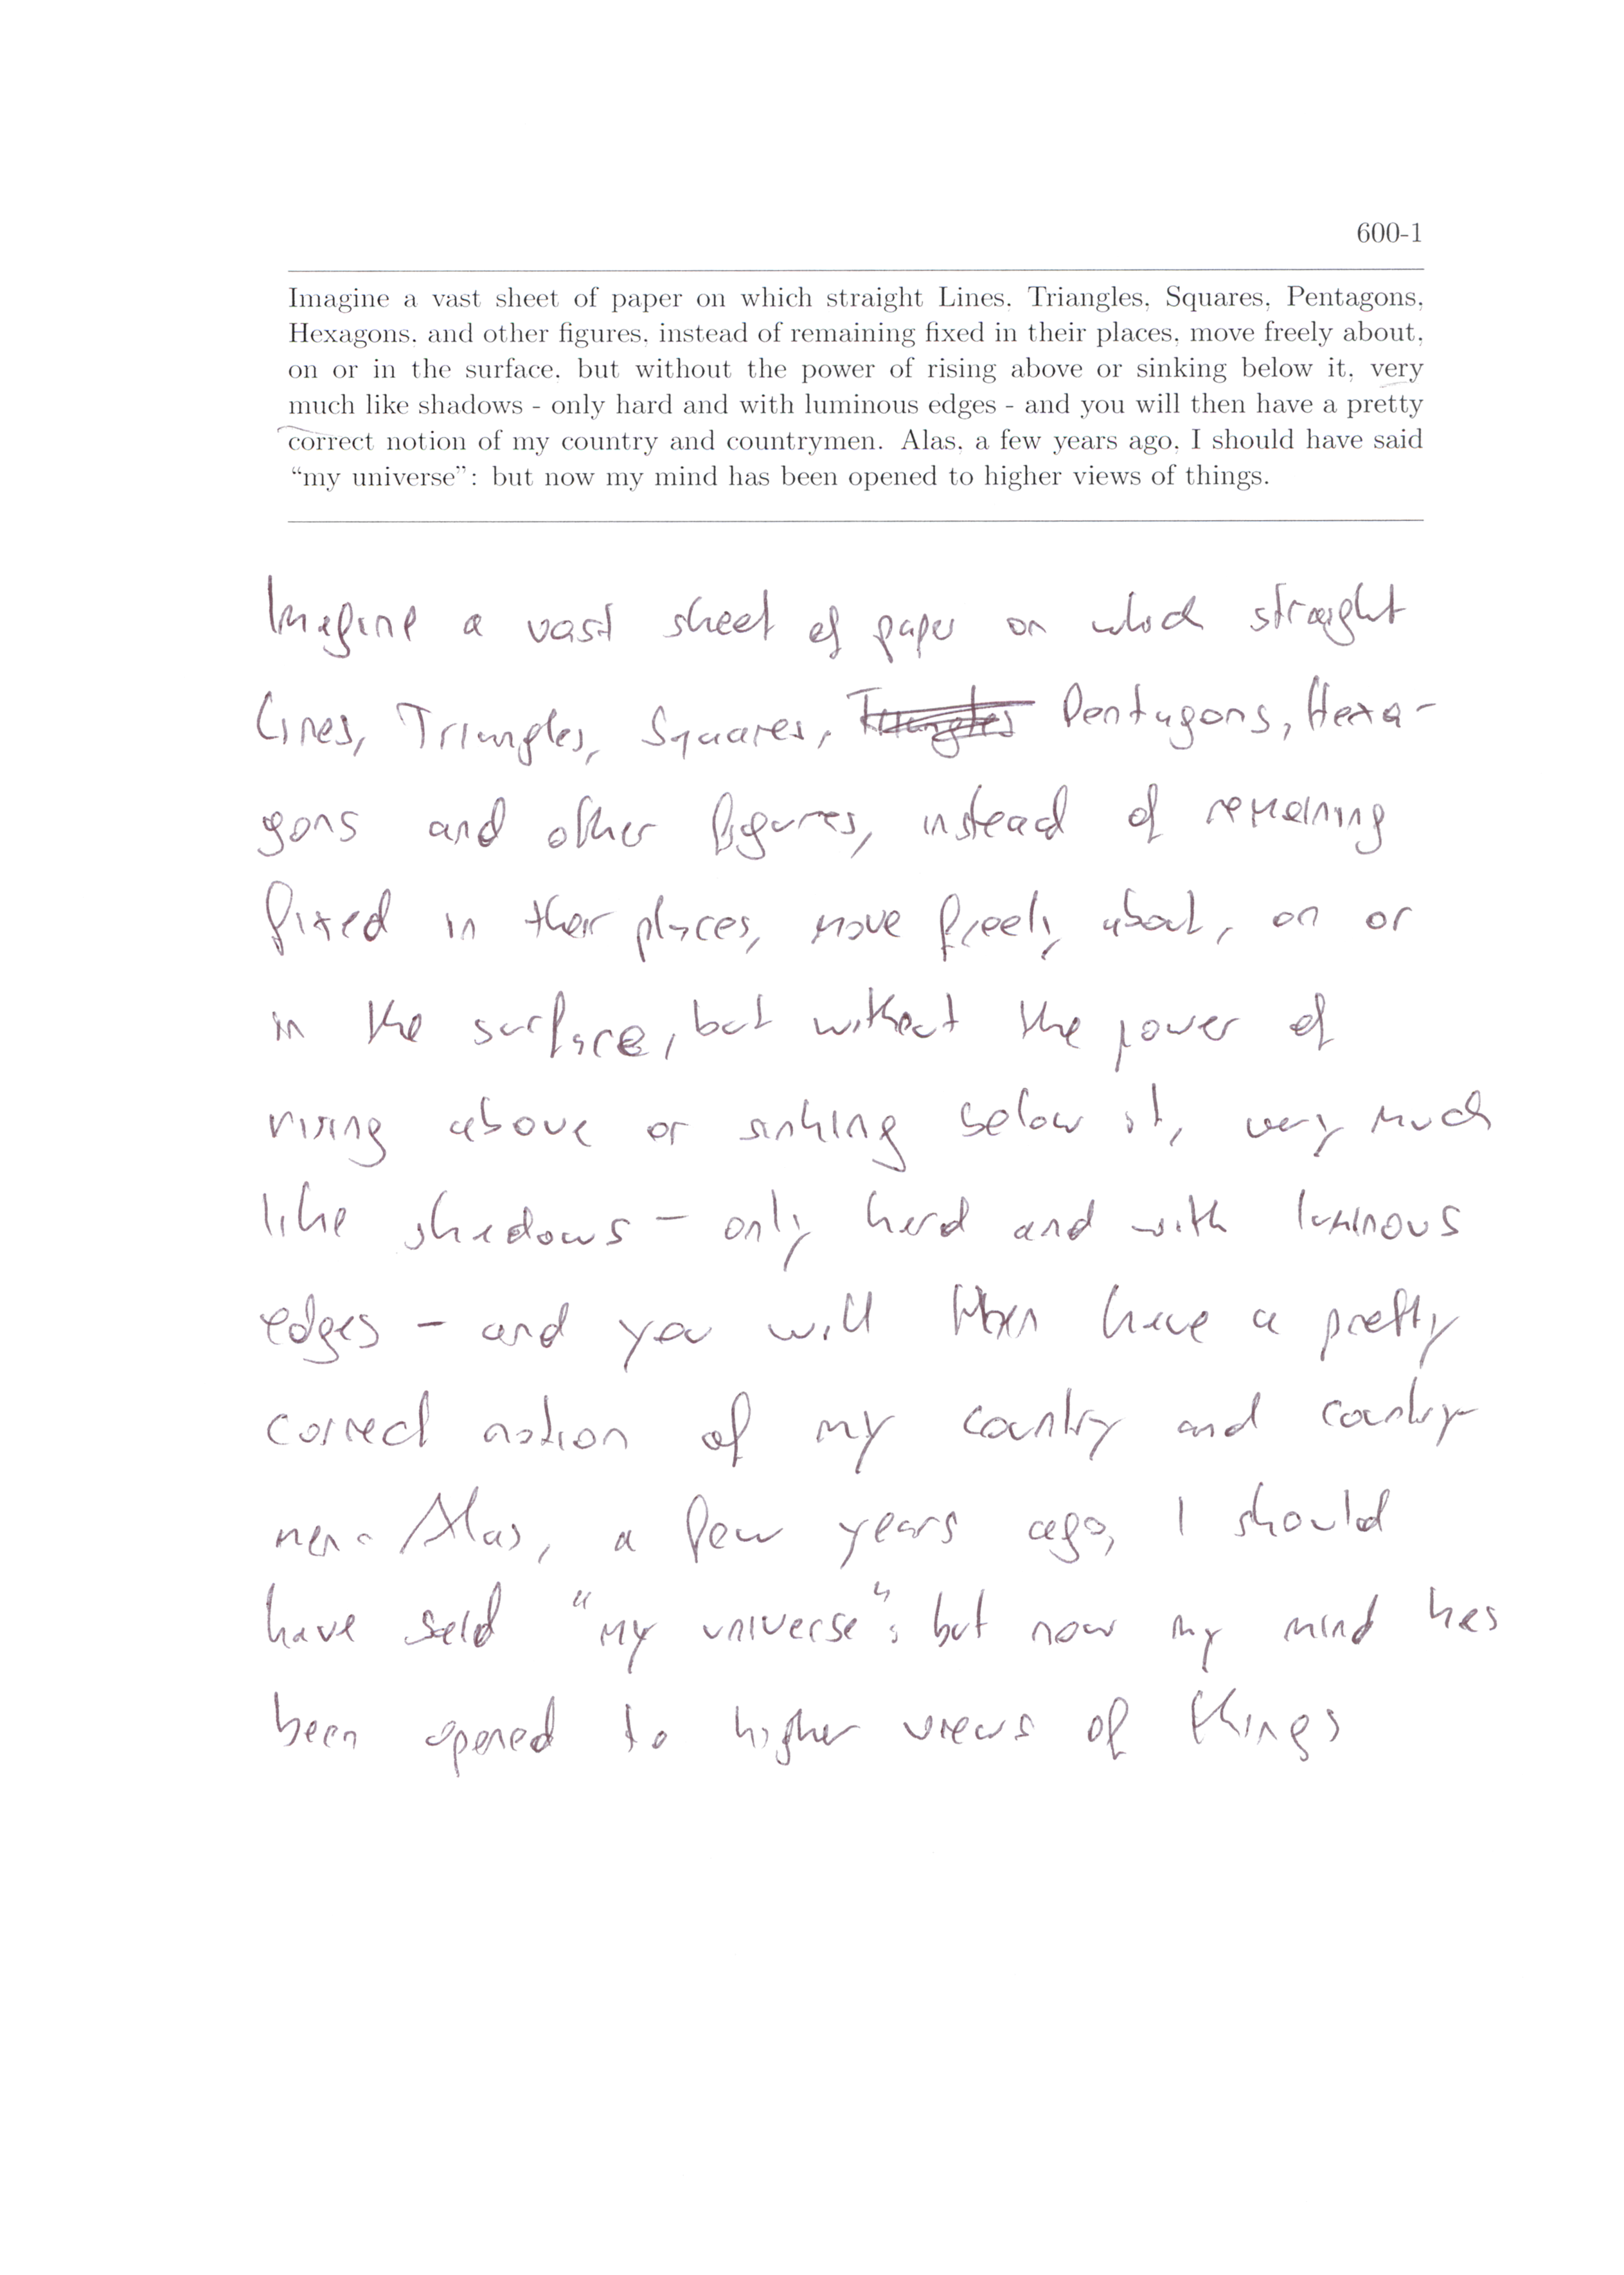 600-1
Imagine a vast sheet of paper on which straight Lines, Triangles, Squares, Pentagons,
Hexagons, and other figures, instead of remaining fixed in their places, move freely about,
on or in the surface, but without the power of rising above or sinking below it, very
much like shadows - only hard and with luminous edges - and you will then have a pretty
correct notion of my country and countrymen. Alas, a few years ago, I should have said
“my universe”: but now my mind has been opened to higher views of things.
Imagine a vast sheet of paper on which straight
Lines, Triangles, Squares, Triangles Pentagons, Hexa-
gons and other figures, instead of remaining
fixed in their places, move freely about, on or
in the surface, but without the power of
rising above or sinking below it, very much
like shadows - only hard and with luminous
edges - and you will then have a pretty
correct notion of my country and country-
men. Alas, a few years ago, I should
have said "my universe": but now my mind has
been opened to higher views of things